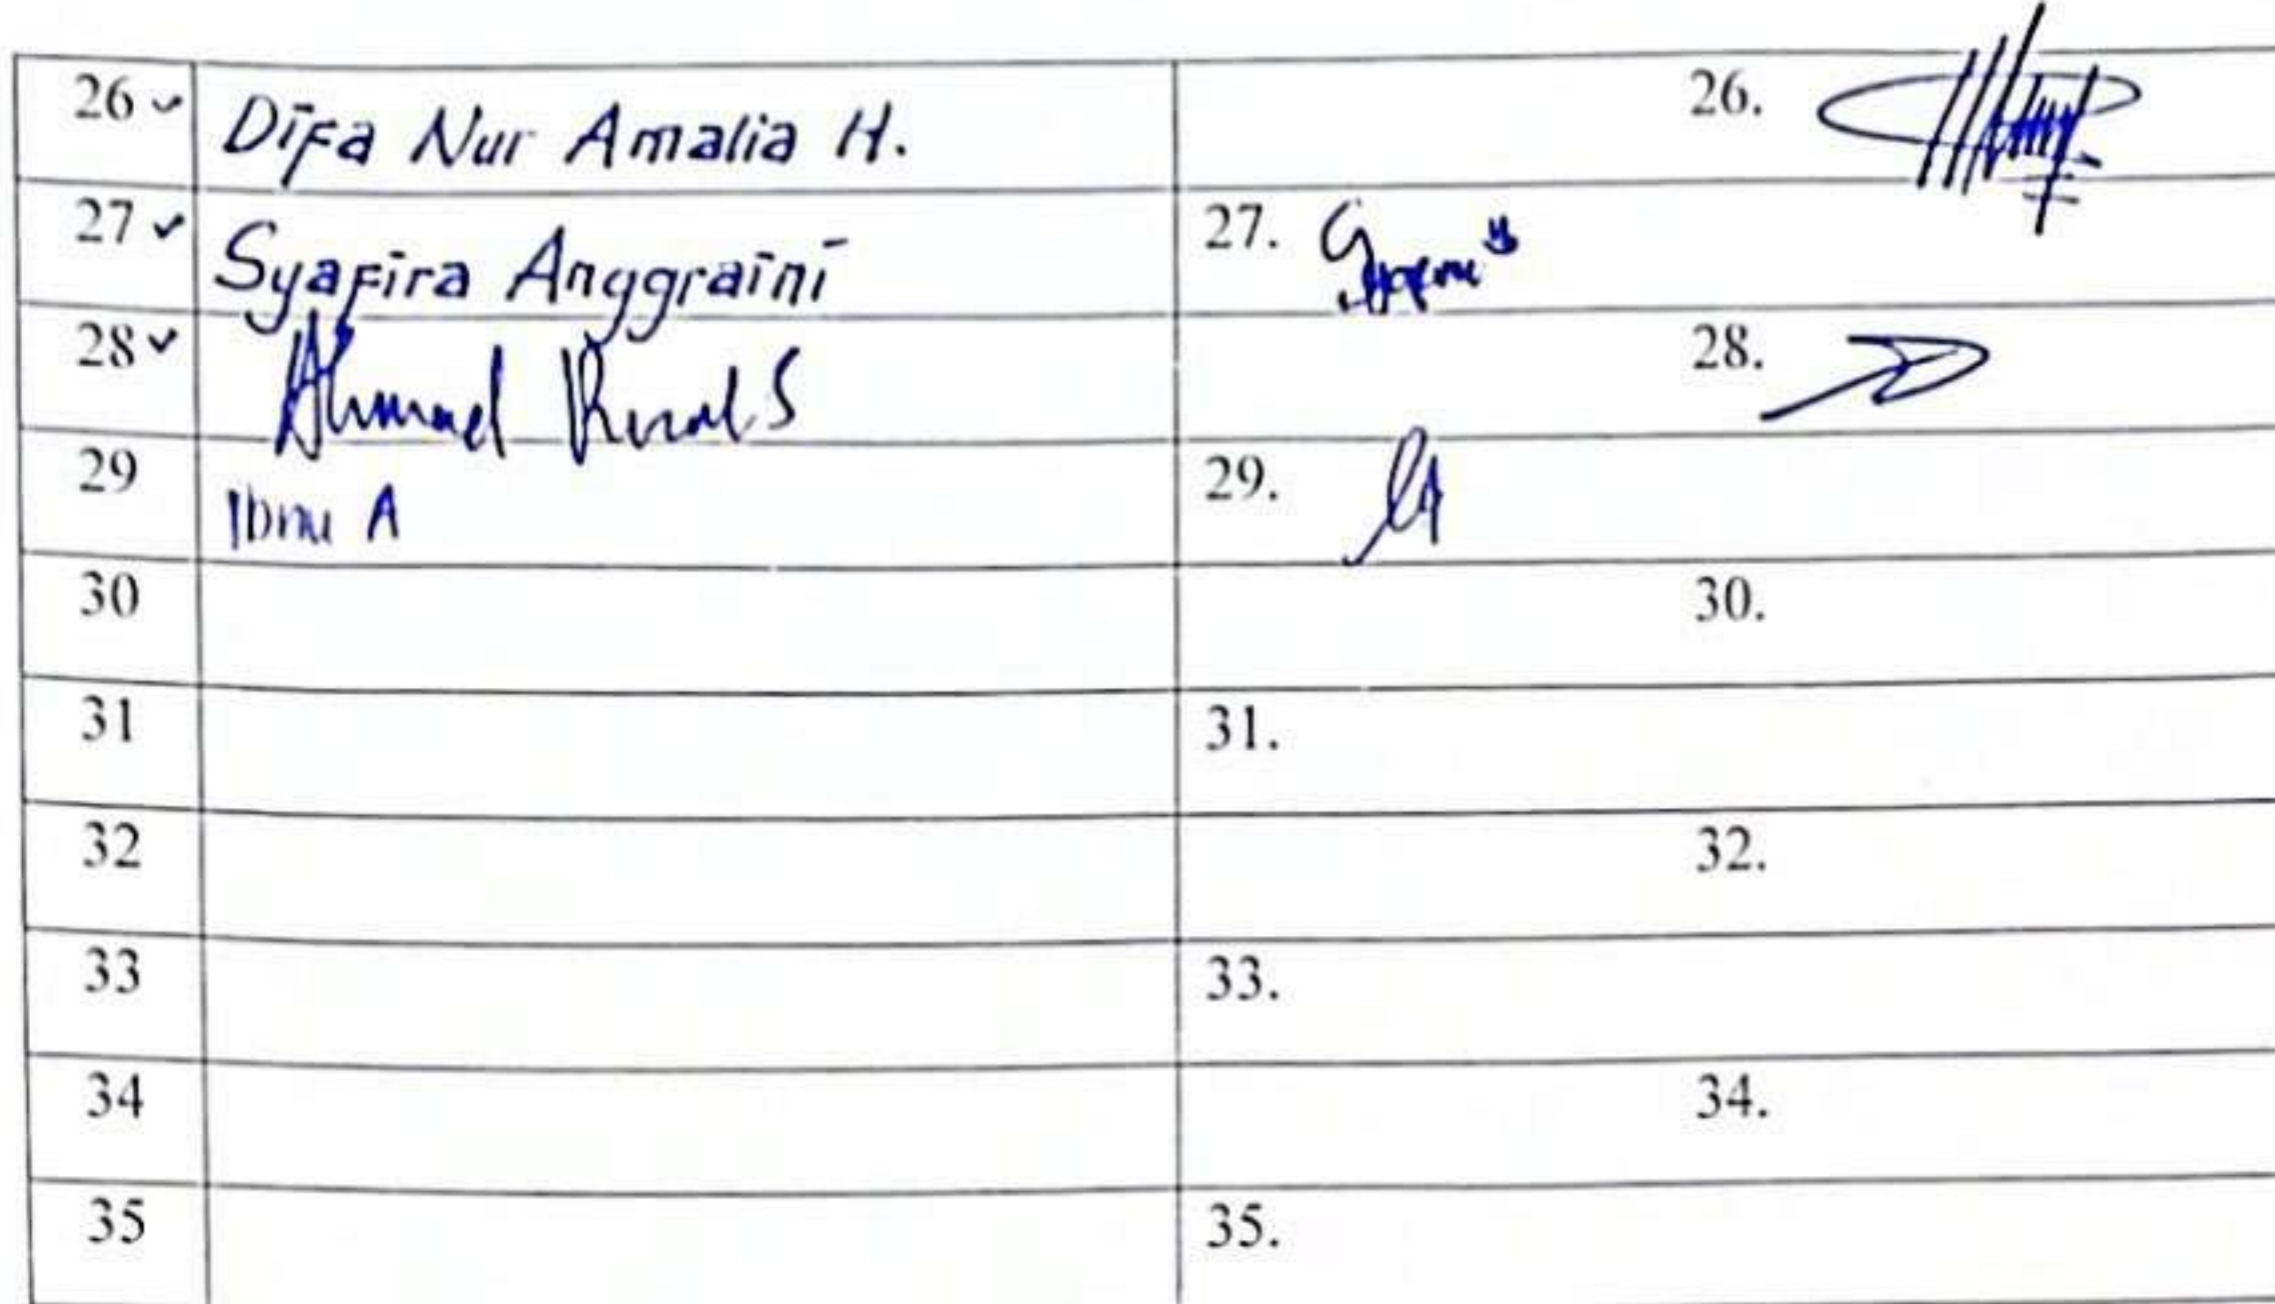 26 Difa Nur Amalia H. 26.
27 Syafira Anggraini 27.
28 Ahmad S 28.
29 Ibnu A 29.
30 30.
31 31.
32 32.
33 33.
34 34.
35 35.